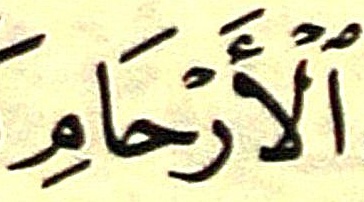 ٱلْأَرْحَامِ